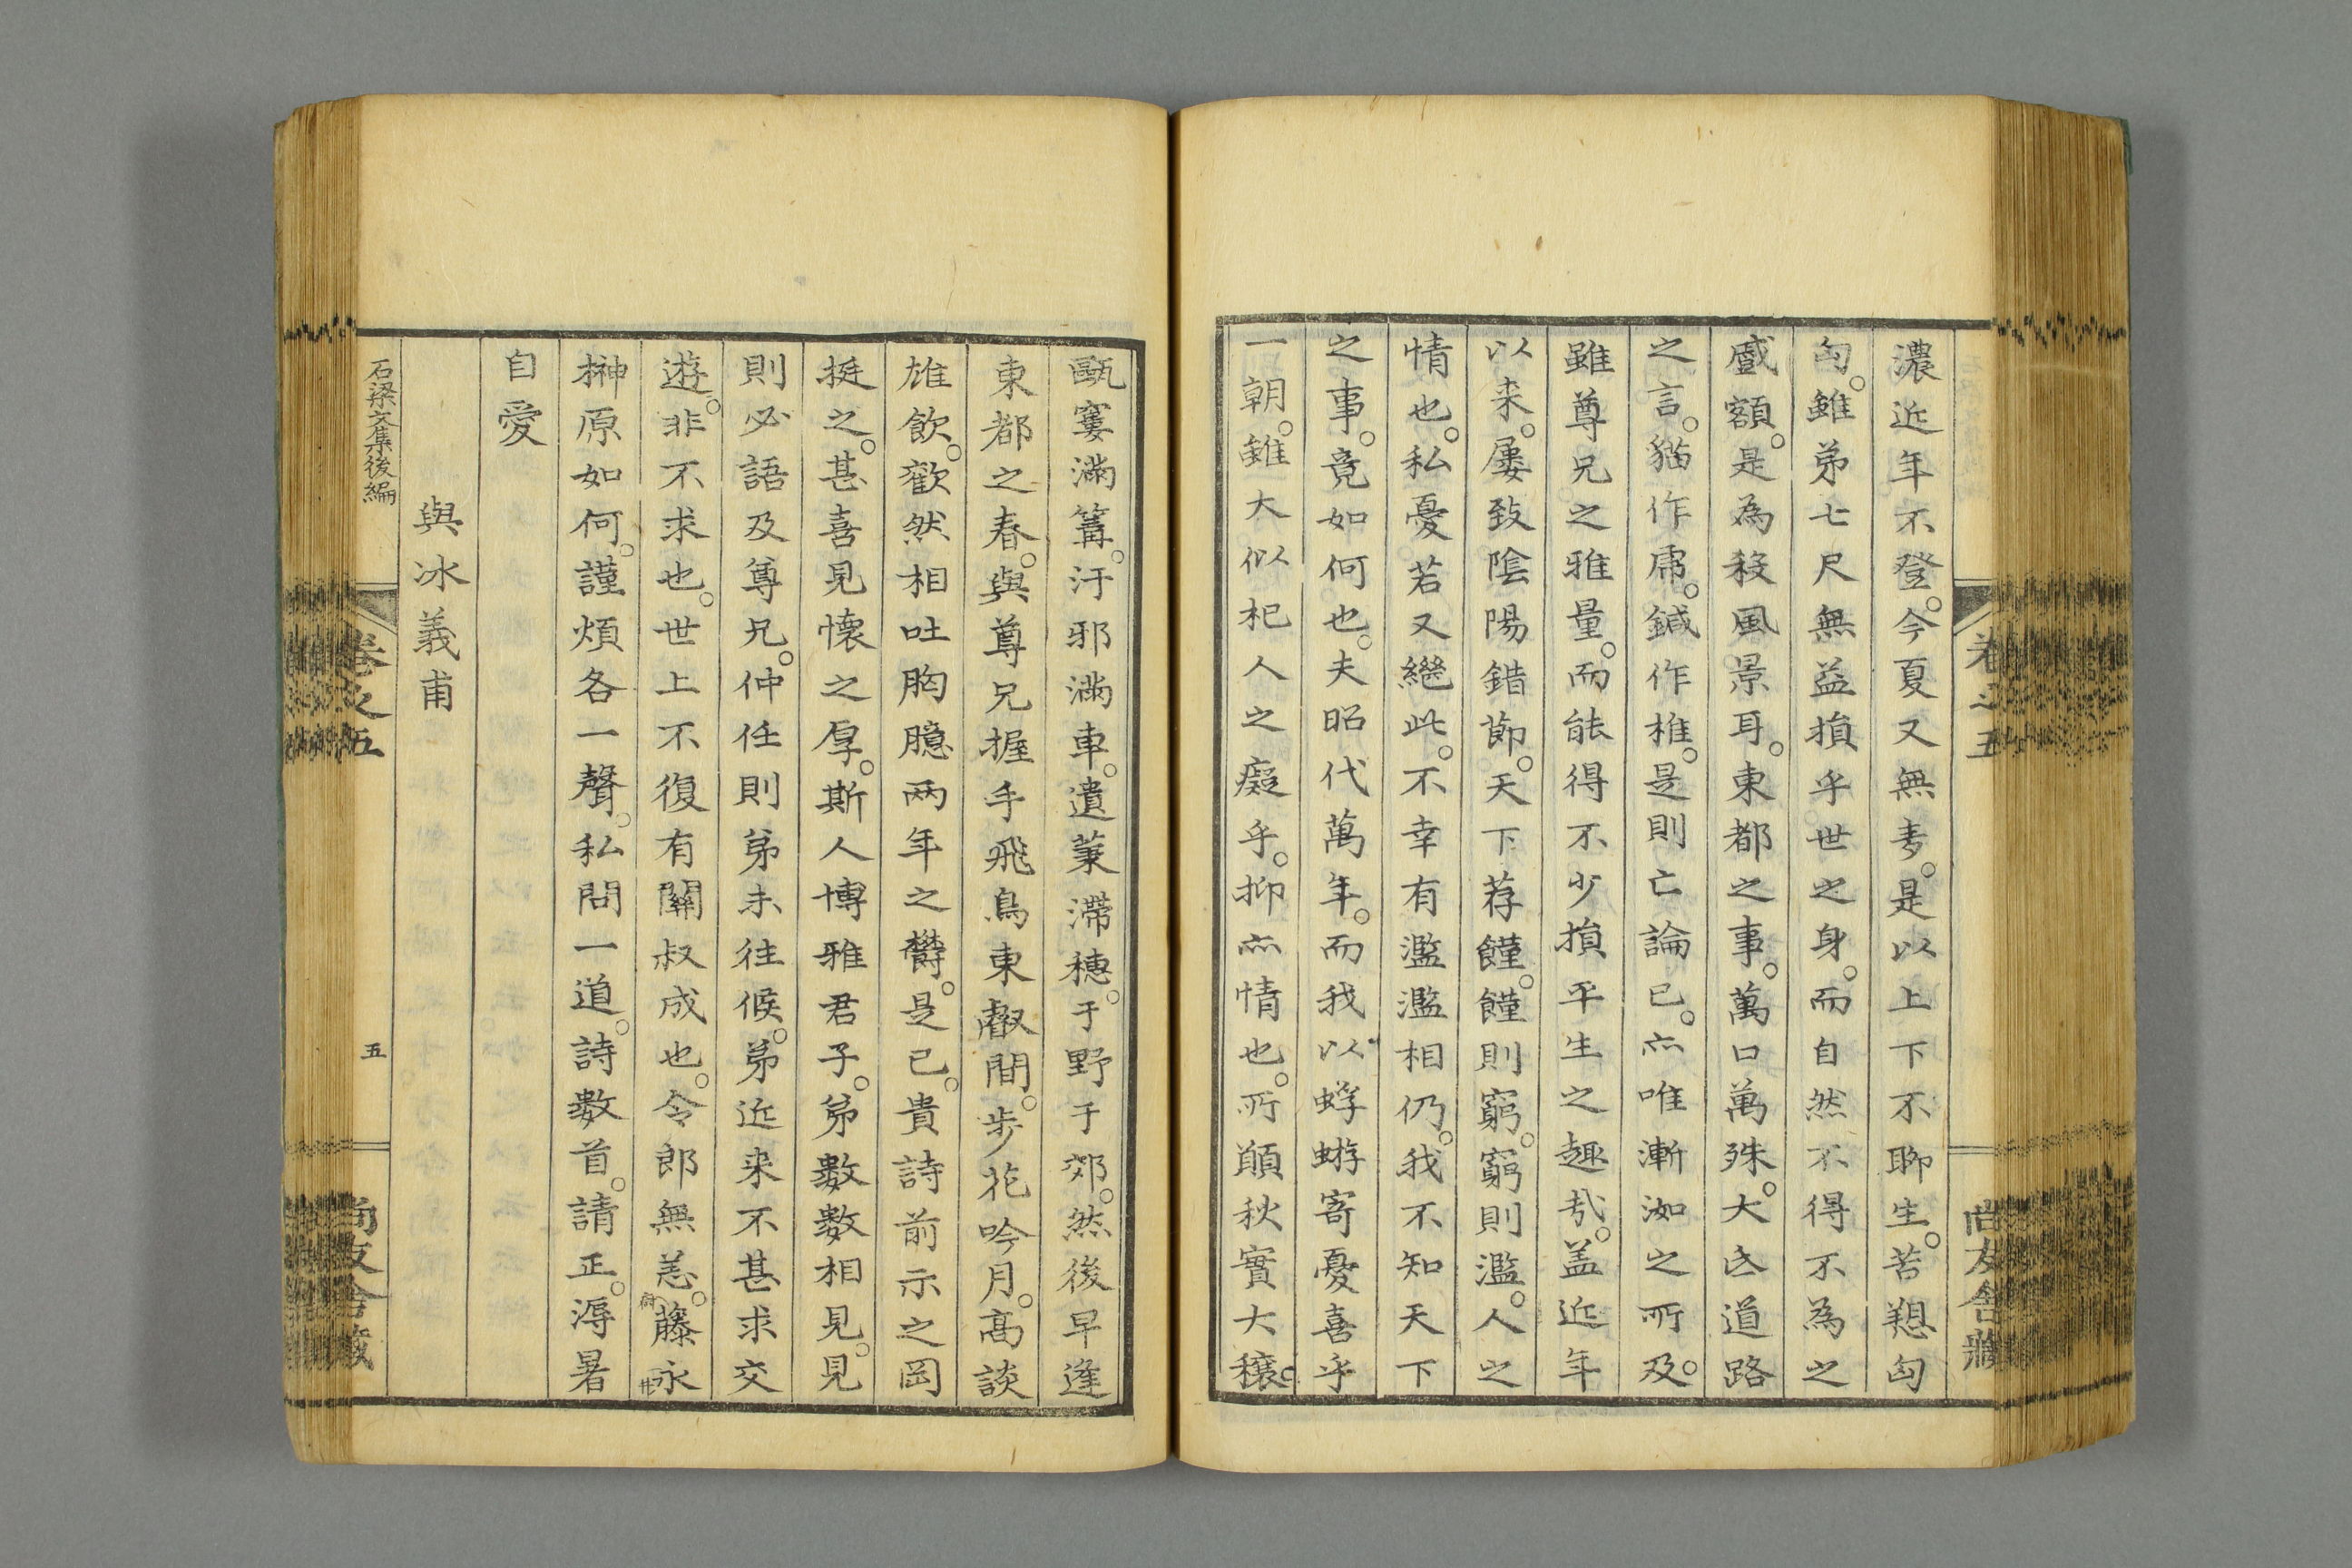 濃近年不登。今夏又無麦。是以上下不聊生。苦懇匈
匈。雖弟七尺無益損乎世之身。而自然不得不為之
蹙額。是為殺風景耳。東都之事。萬口萬殊。大氐道路
之言。猫作虎。鍼作椎。是則亡論已。亦唯漸洳之所及。
雖尊兄之雅量。而能得不少損平生之趣哉。盖近年
以来。屢致陰陽錯節。天下荐饉。饉則窮。窮則濫。人之
情也。私憂若又繼此。不幸有濫濫相仍。我不知天下
之事。竟如何也。夫昭代萬年。而我以蜉蝣寄憂喜乎
一朝。雖大似杞人之癡乎。抑亦情也。所顚秋實大穰。
甌窶滿篝。汙邪滿車。遺秉滯穗。于野于郊。然後早逢
東都之春。與尊兄握手飛鳥東叡間。歩花吟月。高談
雄飲。歡然相吐胸臆兩年之欝。是已。貴詩前示之岡
挺之。甚喜見懷之厚。斯人博雅君子。弟數數相見。見
則必語及尊兄。仲任則弟未往候。弟近来不甚求交
遊。非不求也。世上不復有關叔成也。令郎無恙。藤永
榊原如何。謹煩各一聲。私問一道。詩數首。請正。溽暑
自愛
與冰義甫
石梁文集後編
卷之五
五
尚友舍藏